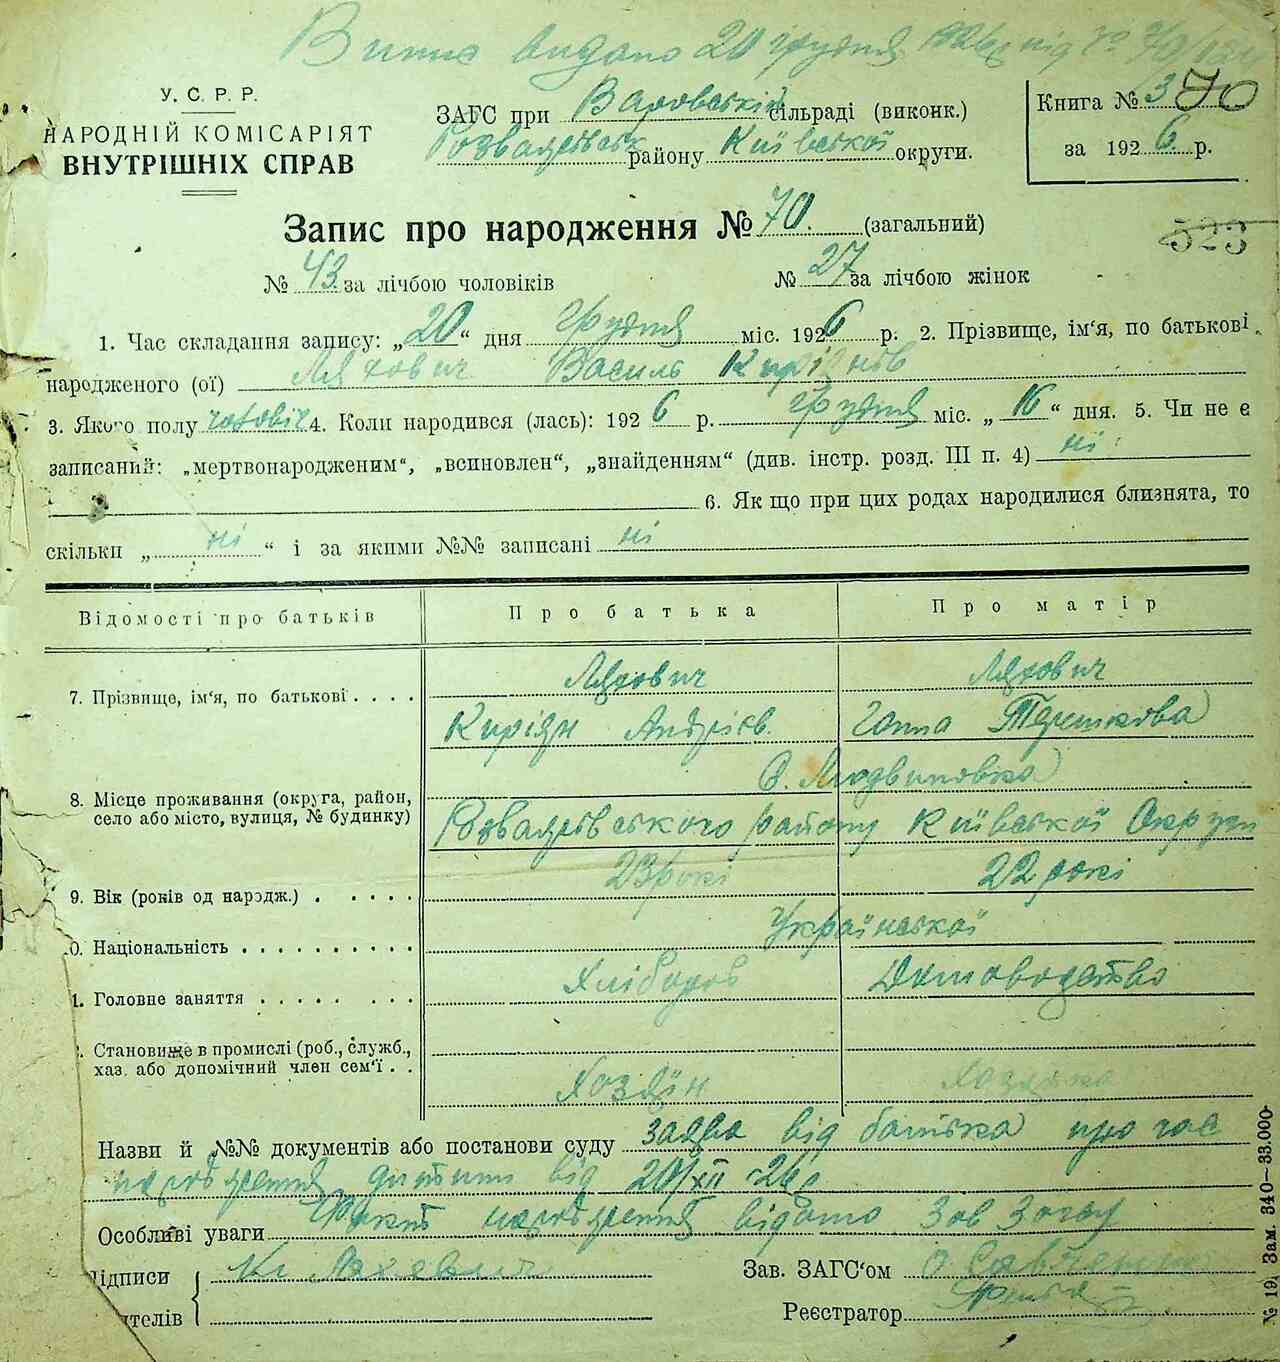 Випис видано 20 грудня 1926 р. під №
У. С. Р. Р.
НАРОДНІЙ КОМІСАРІЯТ
ВНУТРІШНІХ СПРАВ
ЗАГС при сільраді (виконк.)
району Київської округи.
Книга № 3 70
за 1926 р.
Запис про народження № 70. (загальний)
523
№ 43 за лічбою чоловіків № 27 за лічбою жінок
1. Час складання запису: „20“ дня Грудня міс. 1926 р. 2. Прізвище, ім‘я, по батькові
народженого (ої) Ляхович Василь Киріянов
3. Якого полу чоловіч 4. Коли народився (лась): 1926 р. Грудня міс. „16“ дня. 5. Чи не є
записаний: „мертвонародженим“, „всиновлен“, „знайденням“ (див. інстр. розд. III п. 4) ні
6. Як що при цих родах народилися близнята, то
скільки „ ні “ і за якими №№ записані ні
Відомості про батьків Про батька Про матір
7. Прізвище, ім‘я, по батькові . . . . Ляхович Ляхович
Киріян Андрієв. Ганна
с. Людвиновка
8. Місце проживання (округа, район,
село або місто, вулиця, № будинку) Розважівського району Київської Округи
9. Вік (років од народж.) . . . . . 23 рокі 22 рокі
0. Національність . . . . . . . . . . Української
1. Головне заняття . . . . . . . . Хлібороб Домоводство
. Становище в промислі (роб., служб.,
хаз. або допомічний член сем‘ї . . Хозяїн Хозяйка
Назви й №№ документів або постанови суду заява від батька про час
народження дитини від 20/XII 26 р
Особливі уваги народження Зав Загсу
Підписи Ляхович Зав. ЗАГС‘ом О Савченко
ителів Реєстратор
№ 19. Зам. 340—33.000